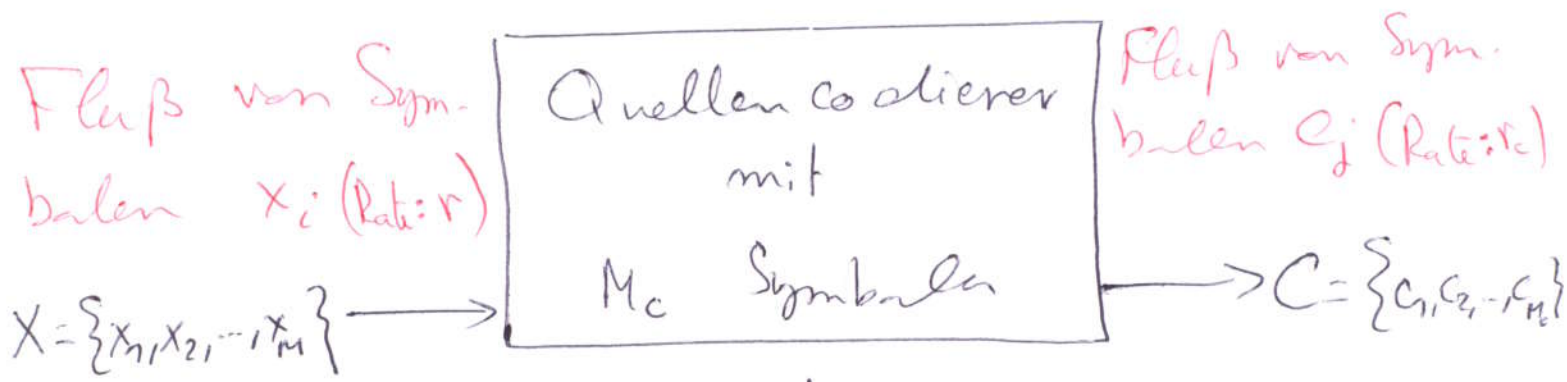 Fluß von Sym-
bolen xᵢ (Rate: r)
X = {x₁, x₂, ..., x_M}
Quellencodierer
mit
M_c Symbolen
Fluß von Sym-
bolen c_j (Rate: r_c)
C = {c₁, c₂, .., c_{M_c}}